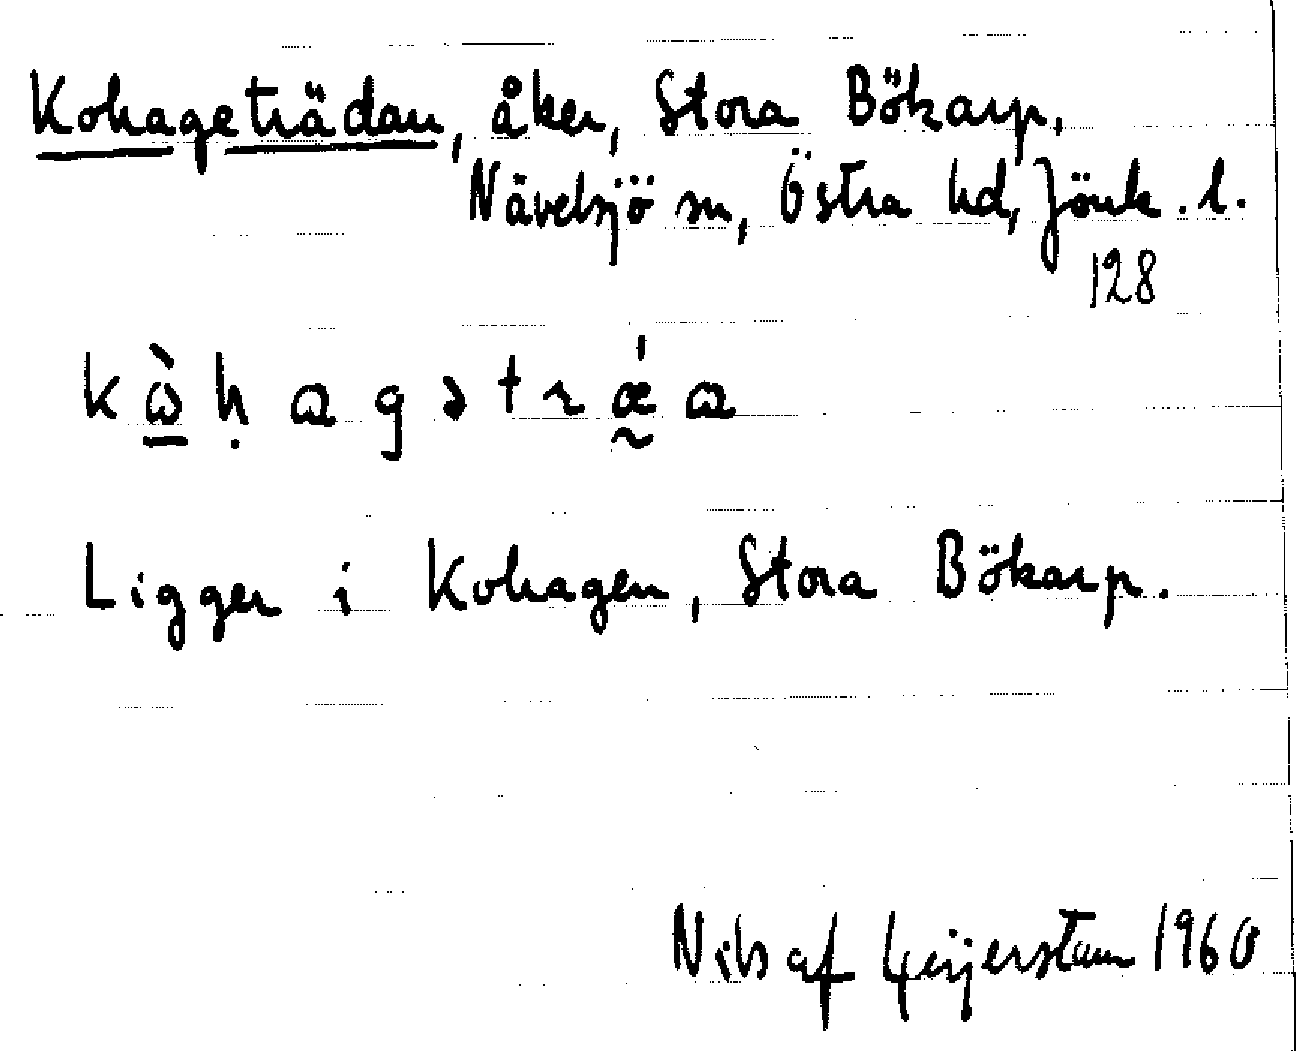 Kohageträdan, åker, Stora Bökarp,
Nävelsjö sn, Östra hd, Jönk. l.
128
kɷ̠̀ḥɑgətrǽ̰ɑ
Ligger i Kohagen, Stora Bökarp.
Nils af Geijerstam 1960